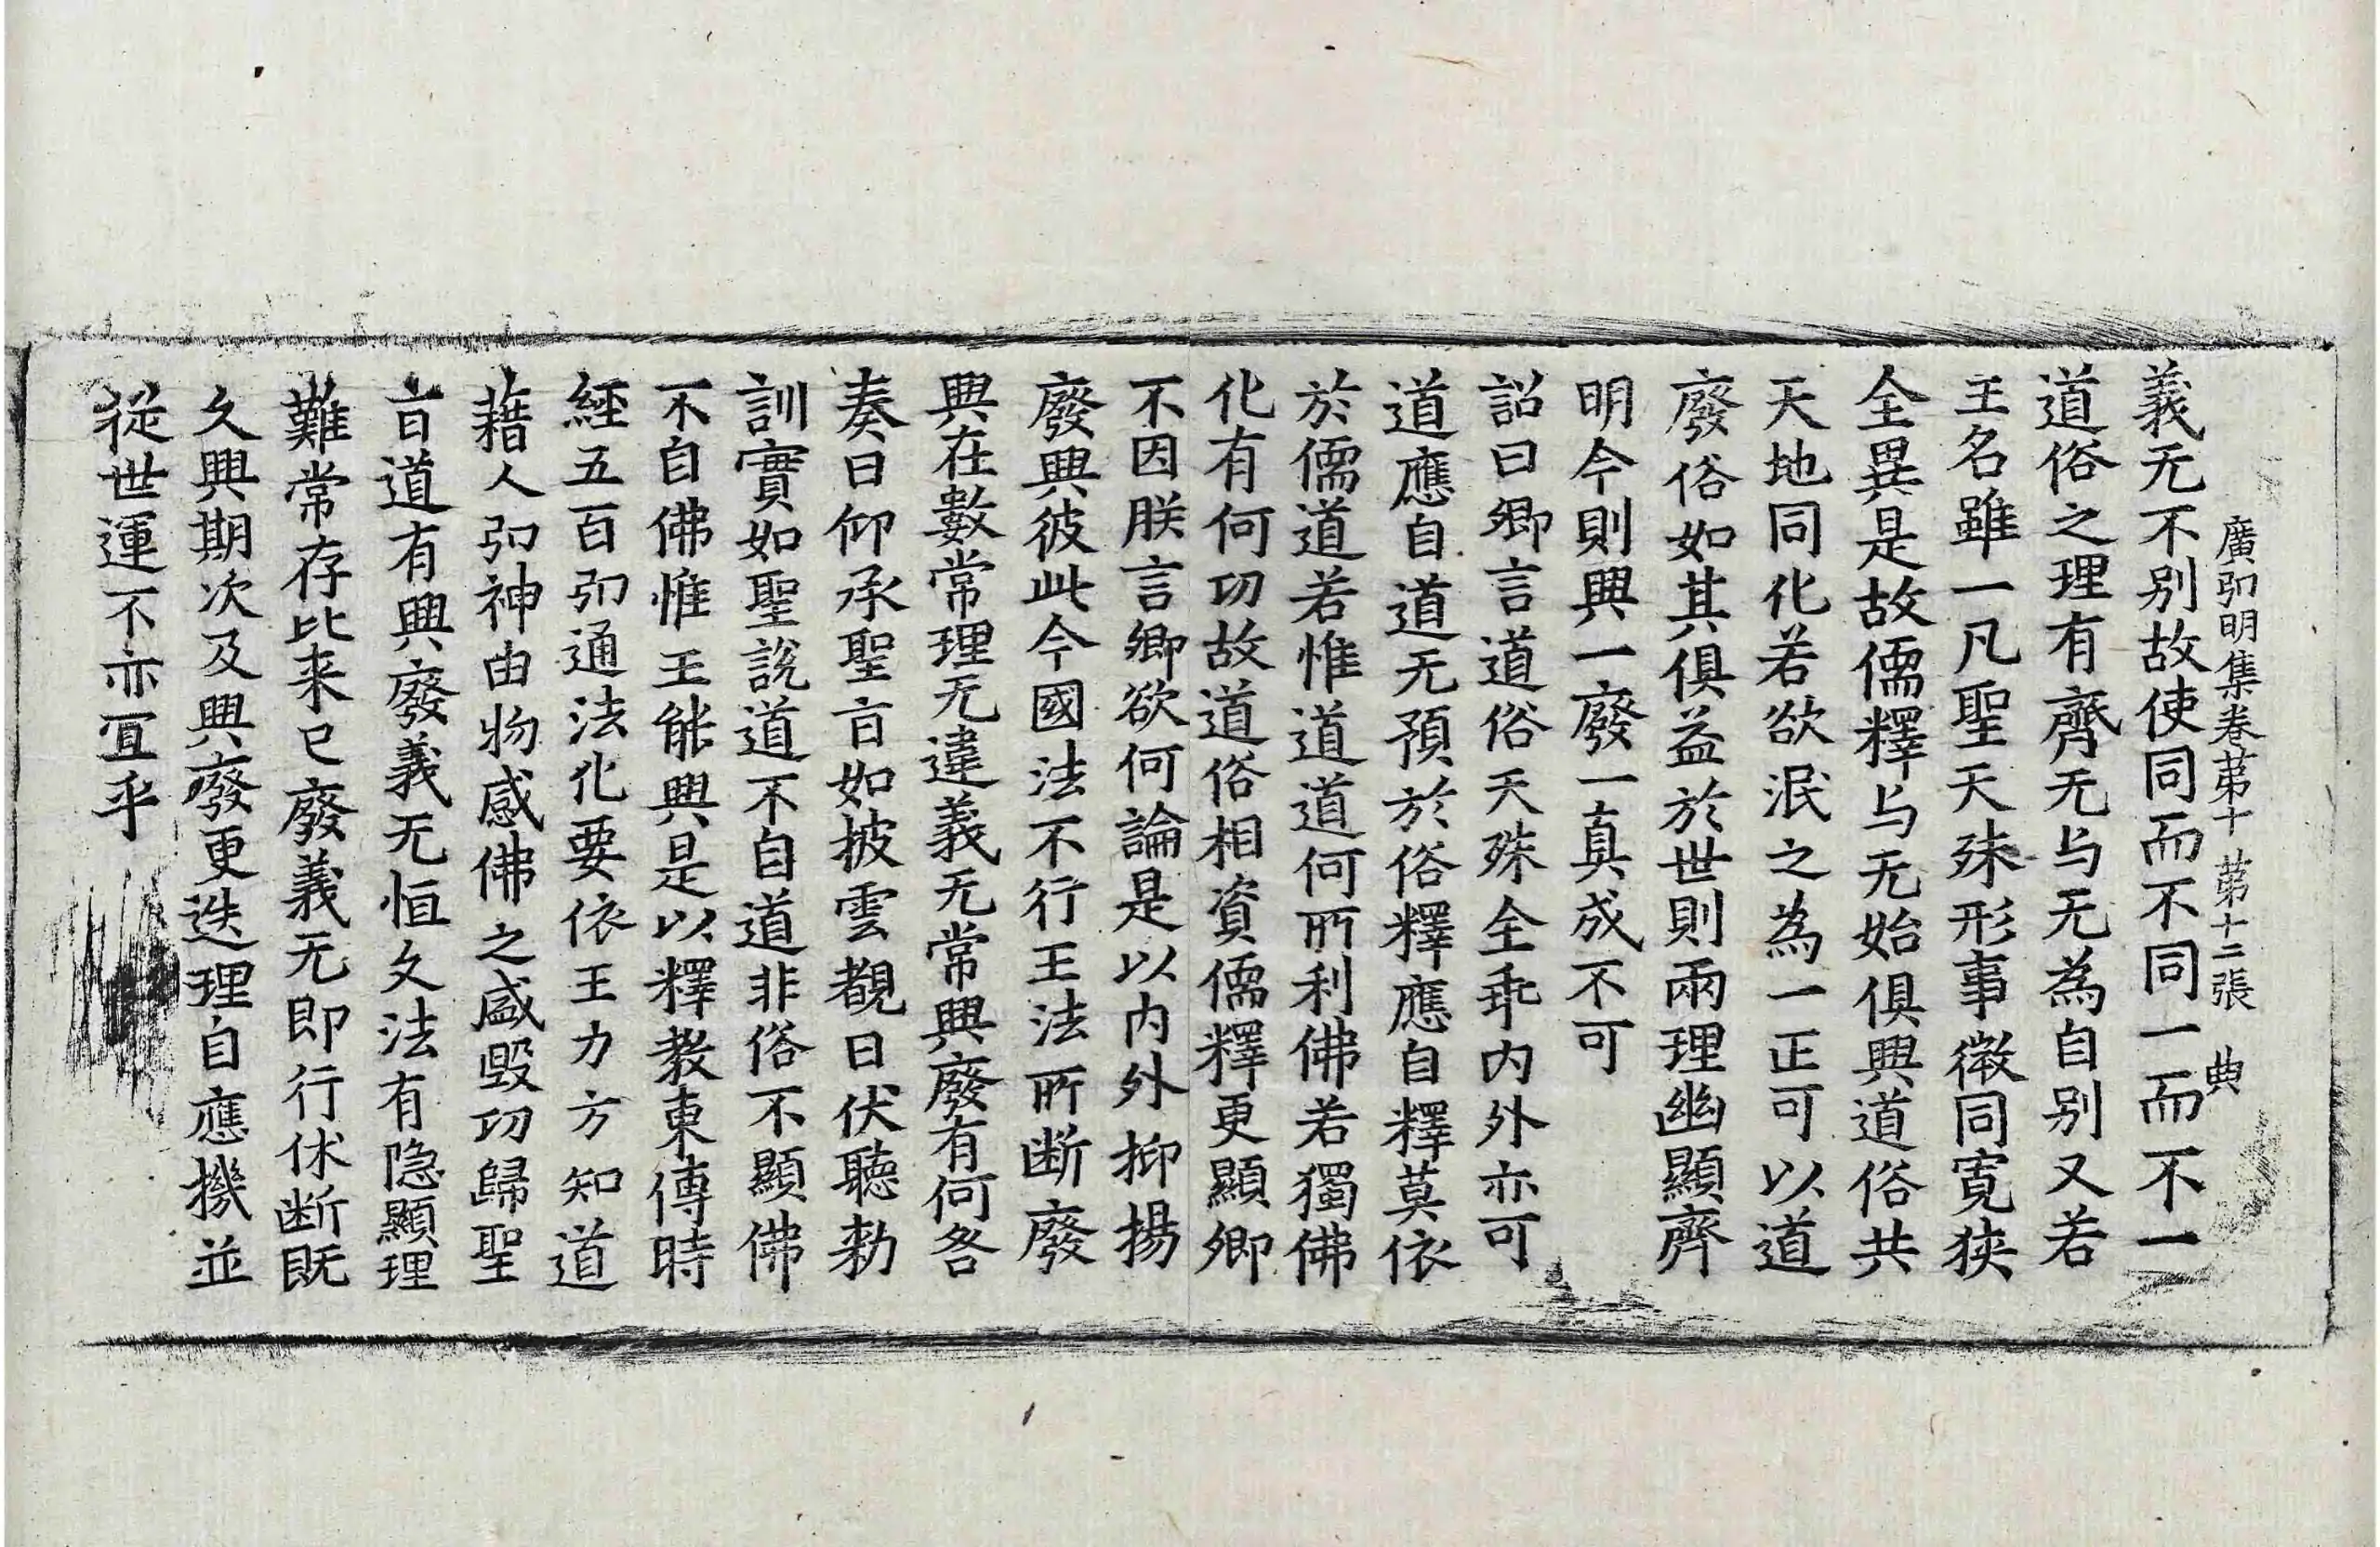 廣弘明集卷苐十 苐十二張 典
義无不别故使同而不同一而不一
道俗之理有齊无与无為自别又若
王名雖一凡聖天殊形事微同寛狹
全異是故儒釋与无始俱興道俗共
天地同化若欲泯之為一正可以道
廢俗如其俱益於世則兩理幽顯齊
明今則興一廢一真成不可
詔曰卿言道俗天殊全乖内外亦可
道應自道无預於俗釋應自釋莫依
於儒道若惟道道何所利佛若獨佛
化有何功故道俗相資儒釋更顯卿
不因朕言卿欲何論是以内外抑揚
廢興彼此今國法不行王法所断廢
興在數常理无違義无常興廢有何咎
奏曰仰承聖旨如披雲覩日伏聽勅
訓實如聖說道不自道非俗不顯佛
不自佛惟王能興是以釋教東傳時
經五百弘通法化要依王力方知道
藉人弘神由物感佛之盛毀功歸聖
旨道有興廢義无恒久法有隐顯理
難常存比来已廢義无即行休断既
久興期次及興廢更迭理自應機並
從世運不亦宜乎